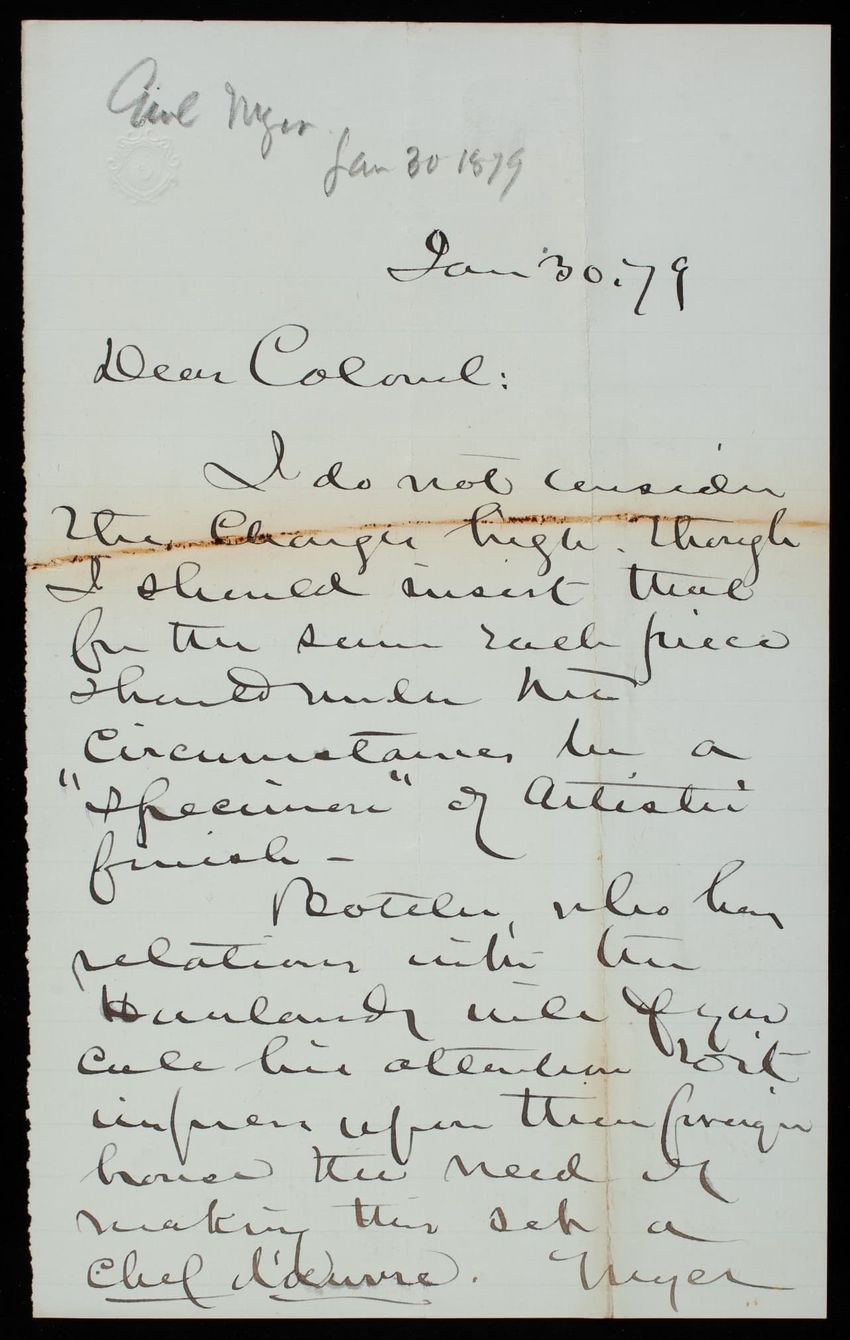 Genl Myer
Jan 30 1879
Jan 30. 79
Dear Colonel:
I do not consider
the charges high. Though
I should insist that
for the sum each piece
should under the
circumstances be a
"specimen" of Artistic
finish -
Boteler, who has
relations with the
Havilands will if you
call his attention to it
impress upon their foreign
house the need of
making this set a
chef d'oeuvre. Myer